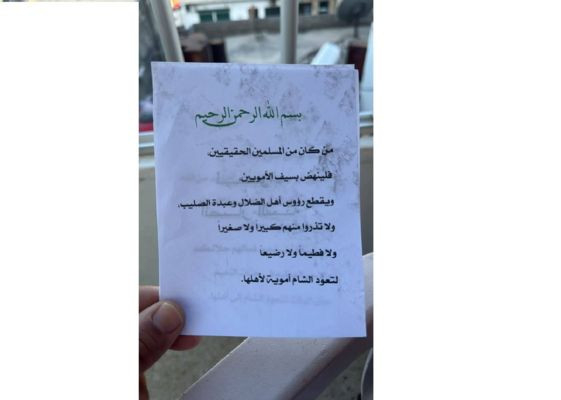 بسم الله الرحمن الرحيم
من كان من المسلمين الحقيقيين،
فلينهض بسيف الأمويين،
ويقطع رؤوس أهل الضلال وعبدة الصليب،
ولا تذروا منهم كبيراً ولا صغيراً
ولا فطيماً ولا رضيعاً
لتعود الشام أموية لأهلها.